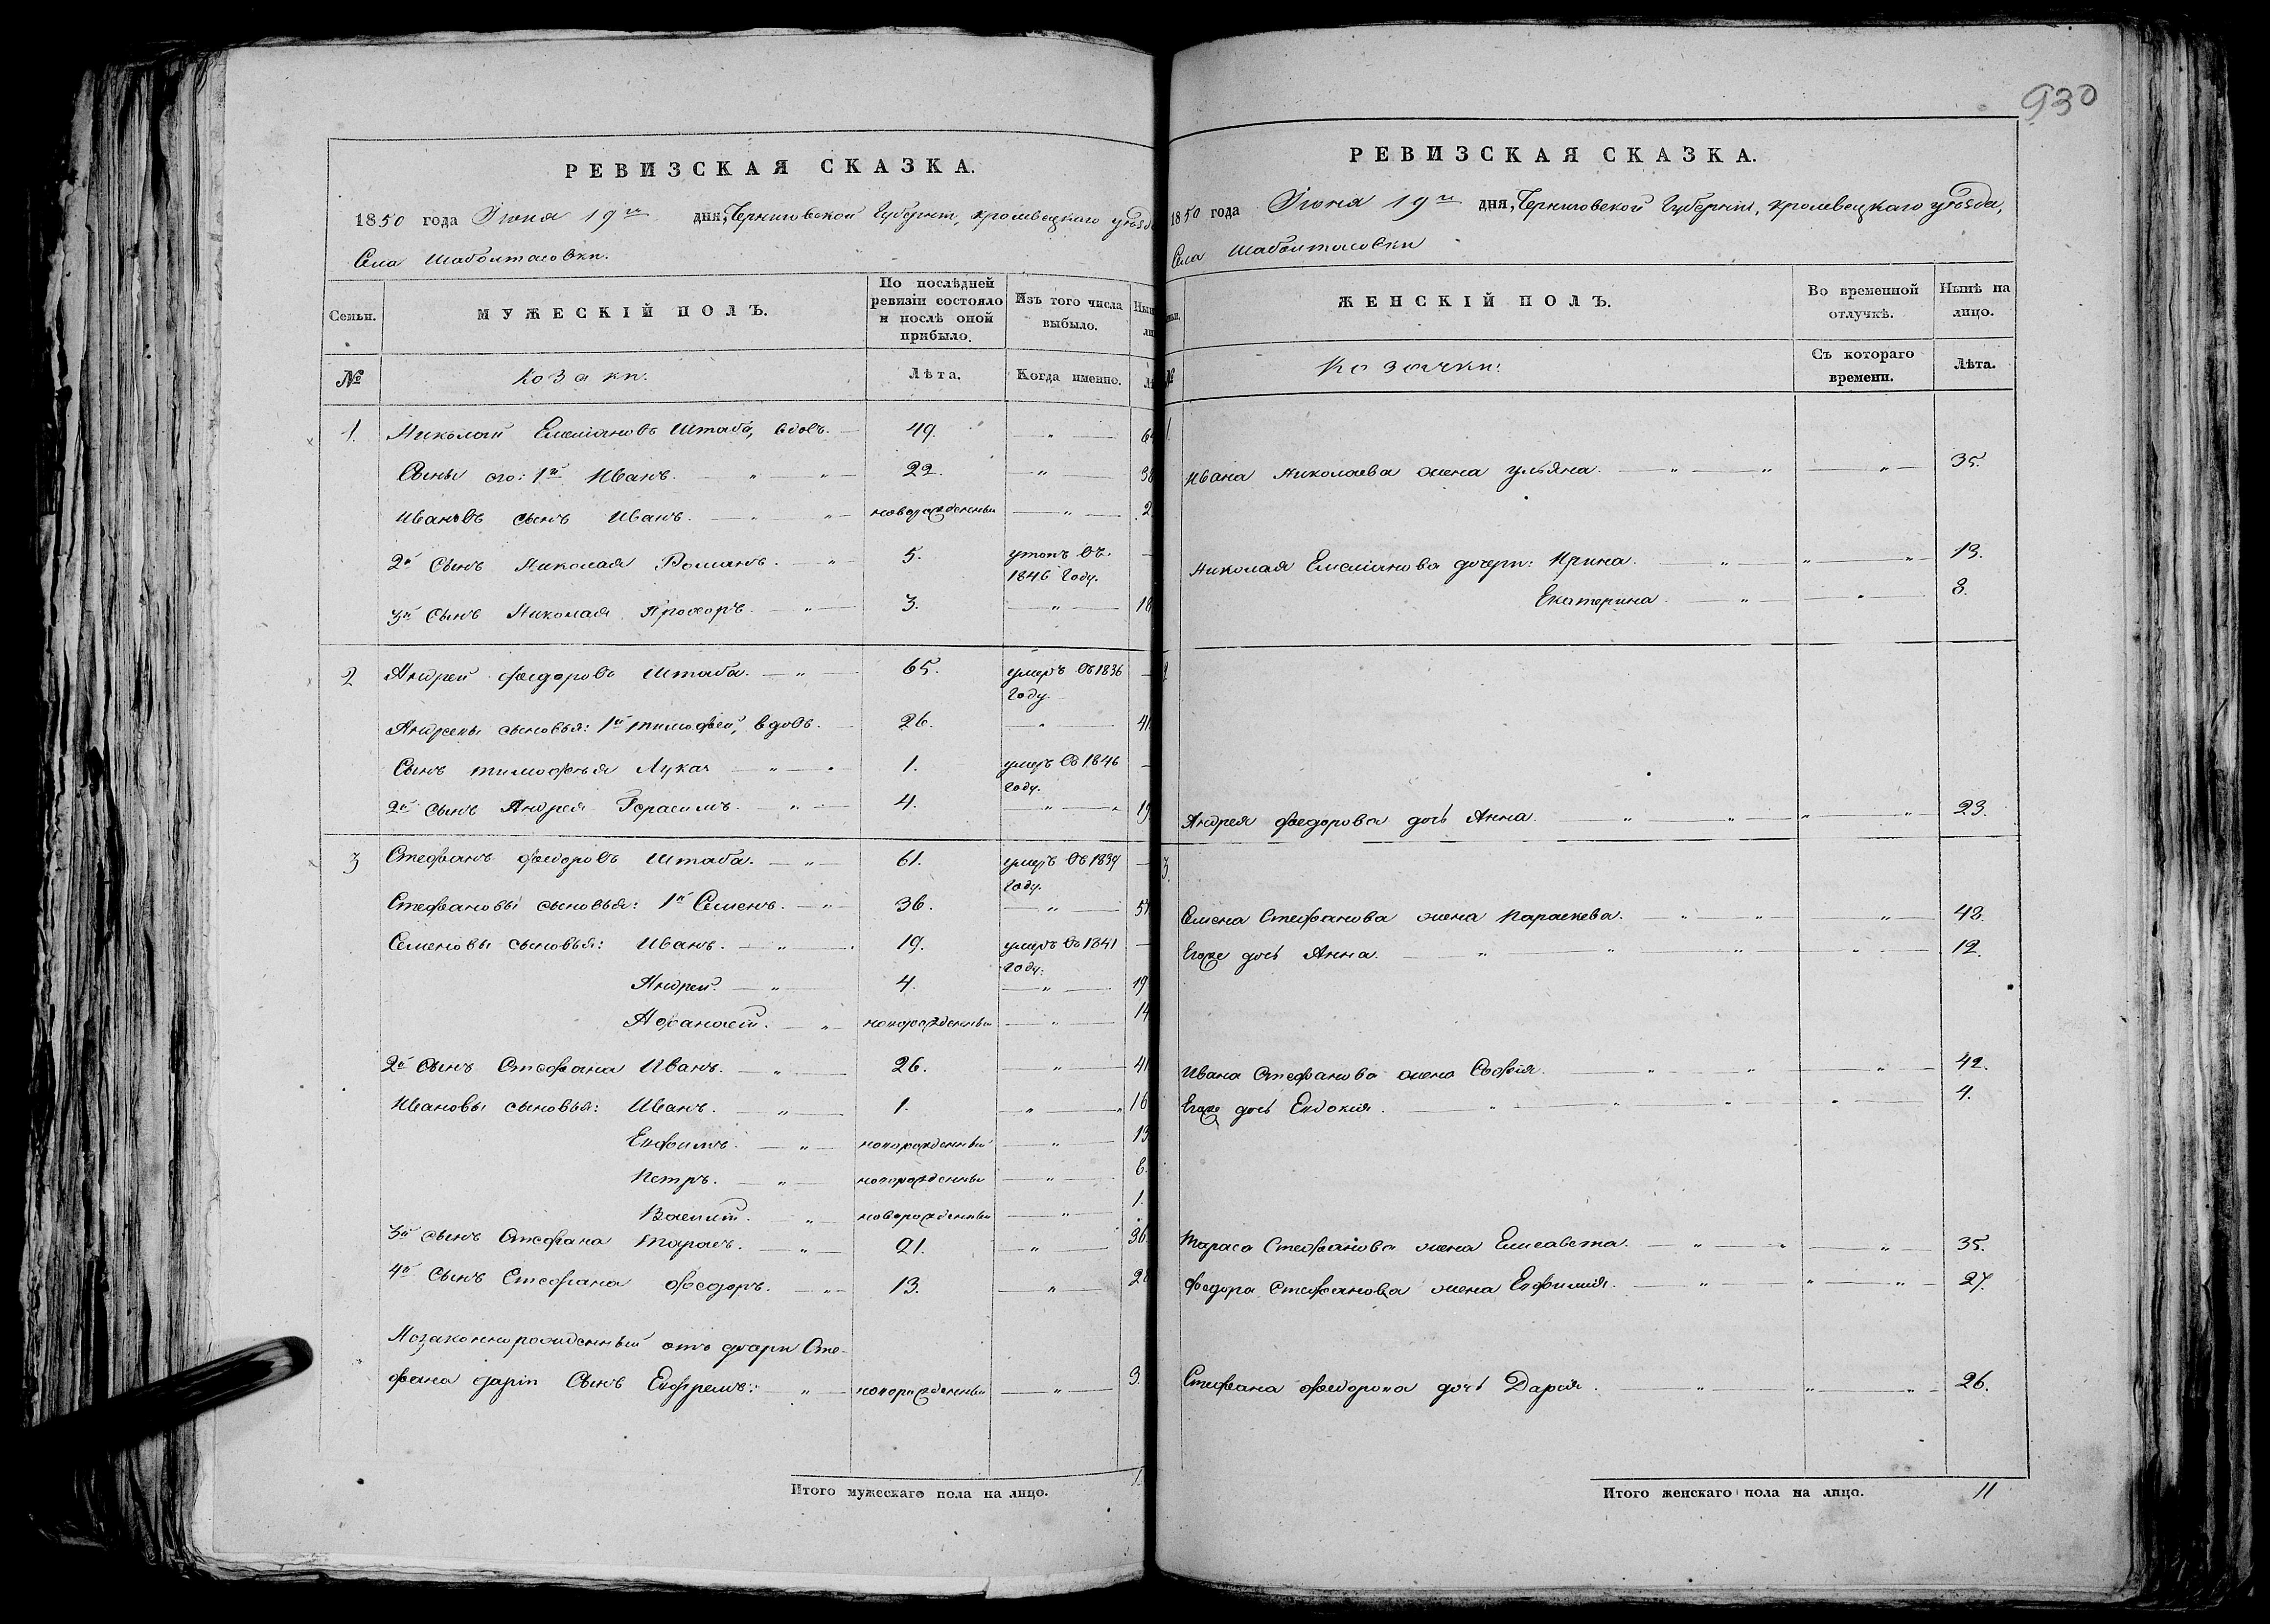 РЕВИЗСКАЯ СКАЗКА.
1850 года Іюня 19го дня, Черниговской Губерніи, кролевецкаго уѣзда
Села Шаболтасовки.
Семьи.
МУЖЕСКІЙ ПОЛЪ.
По послѣдней ревизіи состояло и послѣ оной прибыло.
Изъ того числа выбыло.
№
Козаки.
Лѣта.
Когда именно.
1. Николай Емеліановъ Штаба, вдовъ. 49.
Сыны его: 1й Иванъ. 22. 38
Ивановъ сынъ Иванъ. новорожденный 2
2й сынъ Николая Романъ. 5. утопъ въ
1846 году.
3й сынъ Николая Прохоръ. 3. 18
2 Андрей федоровъ Штаба. 65. умеръ въ 1836
году.
Андреевы сыновья: 1й тимофей, вдовъ. 26. 41
Сынъ тимофея Лука 1. умеръ въ 1846
году.
2й сынъ Андрея Герасимъ. 4. 19
3 Стефанъ федоровъ Штаба. 61. умеръ въ 1839
году.
Стефановы сыновья: 1й Семенъ. 36. 51
Семеновы сыновья: Иванъ. 19. умеръ въ 1841
году.
Андрей. 4. 19
Афанасій. новорожденный 14
2й сынъ Стефана Иванъ. 26. 41
Ивановы сыновья: Иванъ. 1. 16
Евфимъ. новорожденный 13
Петръ. новорожденный 6.
Василій. новорожденный 1.
3й сынъ Стефана Тарасъ. 21. 36
4й сынъ Стефана федоръ. 13. 28
Незаконнорожденный отъ дочери Сте-
фана даріи Сынъ Ефремъ: новорожденный 3.
Итого мужескаго пола на лицо.
930
РЕВИЗСКАЯ СКАЗКА.
1850 года Іюня 19го дня, Черниговской Губерніи, кролевецкаго уѣзда,
Села Шаболтасовки
ЖЕНСКІЙ ПОЛЪ.
Во временной отлучкѣ.
Нынѣ на лицо.
№
Козачки.
Съ котораго времени.
Лѣта.
1.
Ивана Николаева жена ульяна. 35.
Николая Емеліанова дочери: Ирина. 13.
Екатерина. 8.
2
Андрея федорова дочь Анна. 23.
3.
Семена Стефанова жена Параскева. 48.
Егоже дочь Анна. 12.
Ивана Стефанова жена Софія. 42.
Егоже дочь Евдокія. 4.
Тараса Стефанова жена Елисавета. 35.
федора Стефанова жена Евфимія. 27.
Стефана федорова дочь Дарія. 26.
Итого женскаго пола на лицо. 11